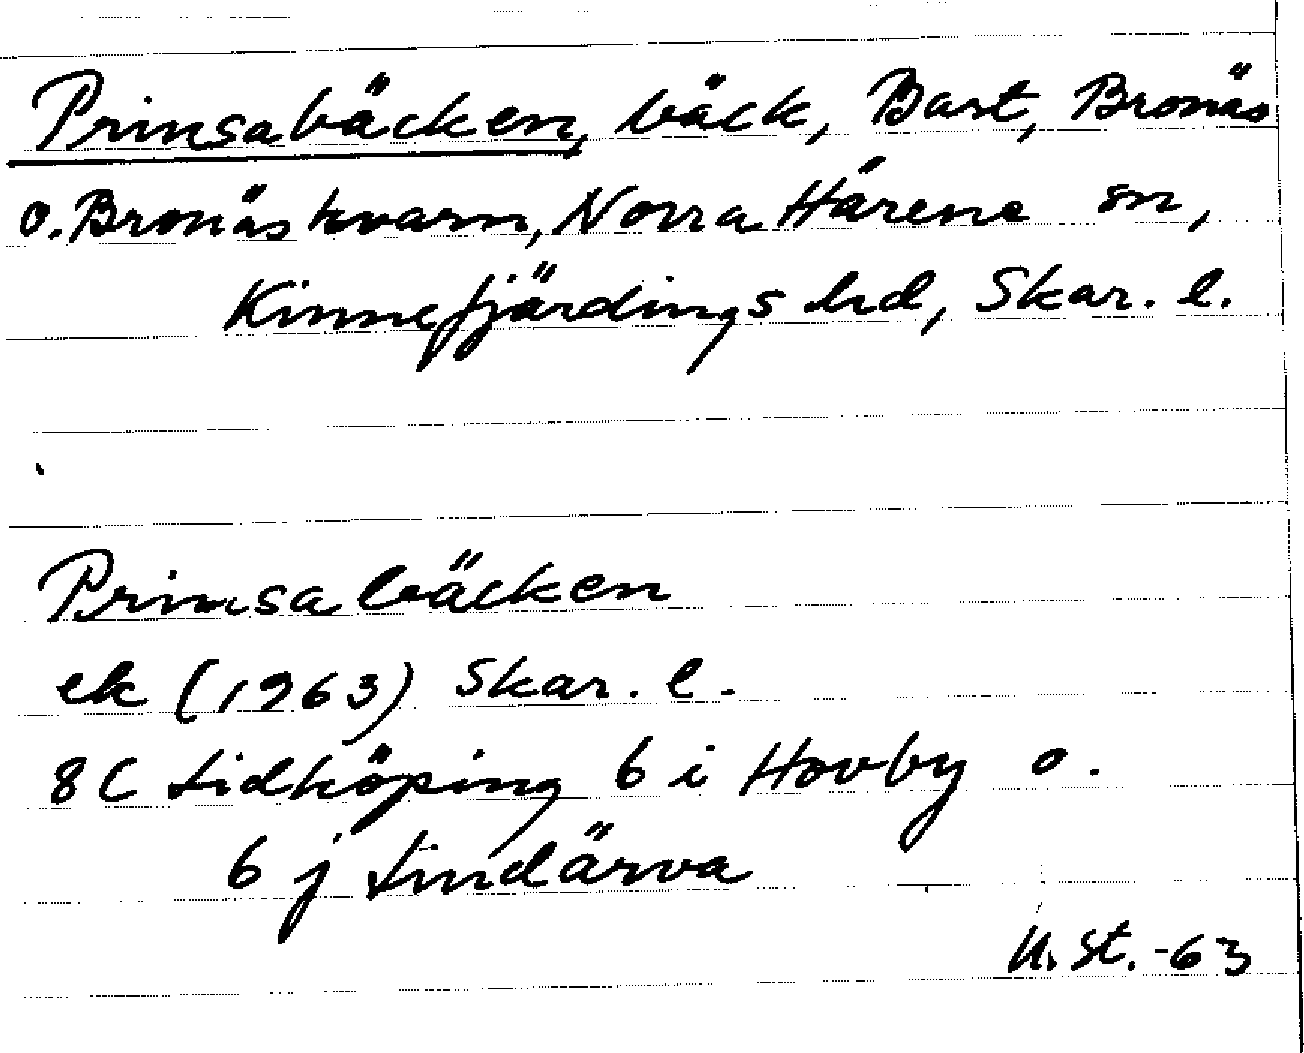 Prinsabäcken, bäck, Bast, Bronäs
o. Bronäs kvarn, Norra Härene sn,
Kinnefjärdings hd, Skar. l.
Prinsabäcken
ek (1963) Skar. l.
8C Lidköping 6 i Hovby o.
6 j Lindärva
U. St. -63